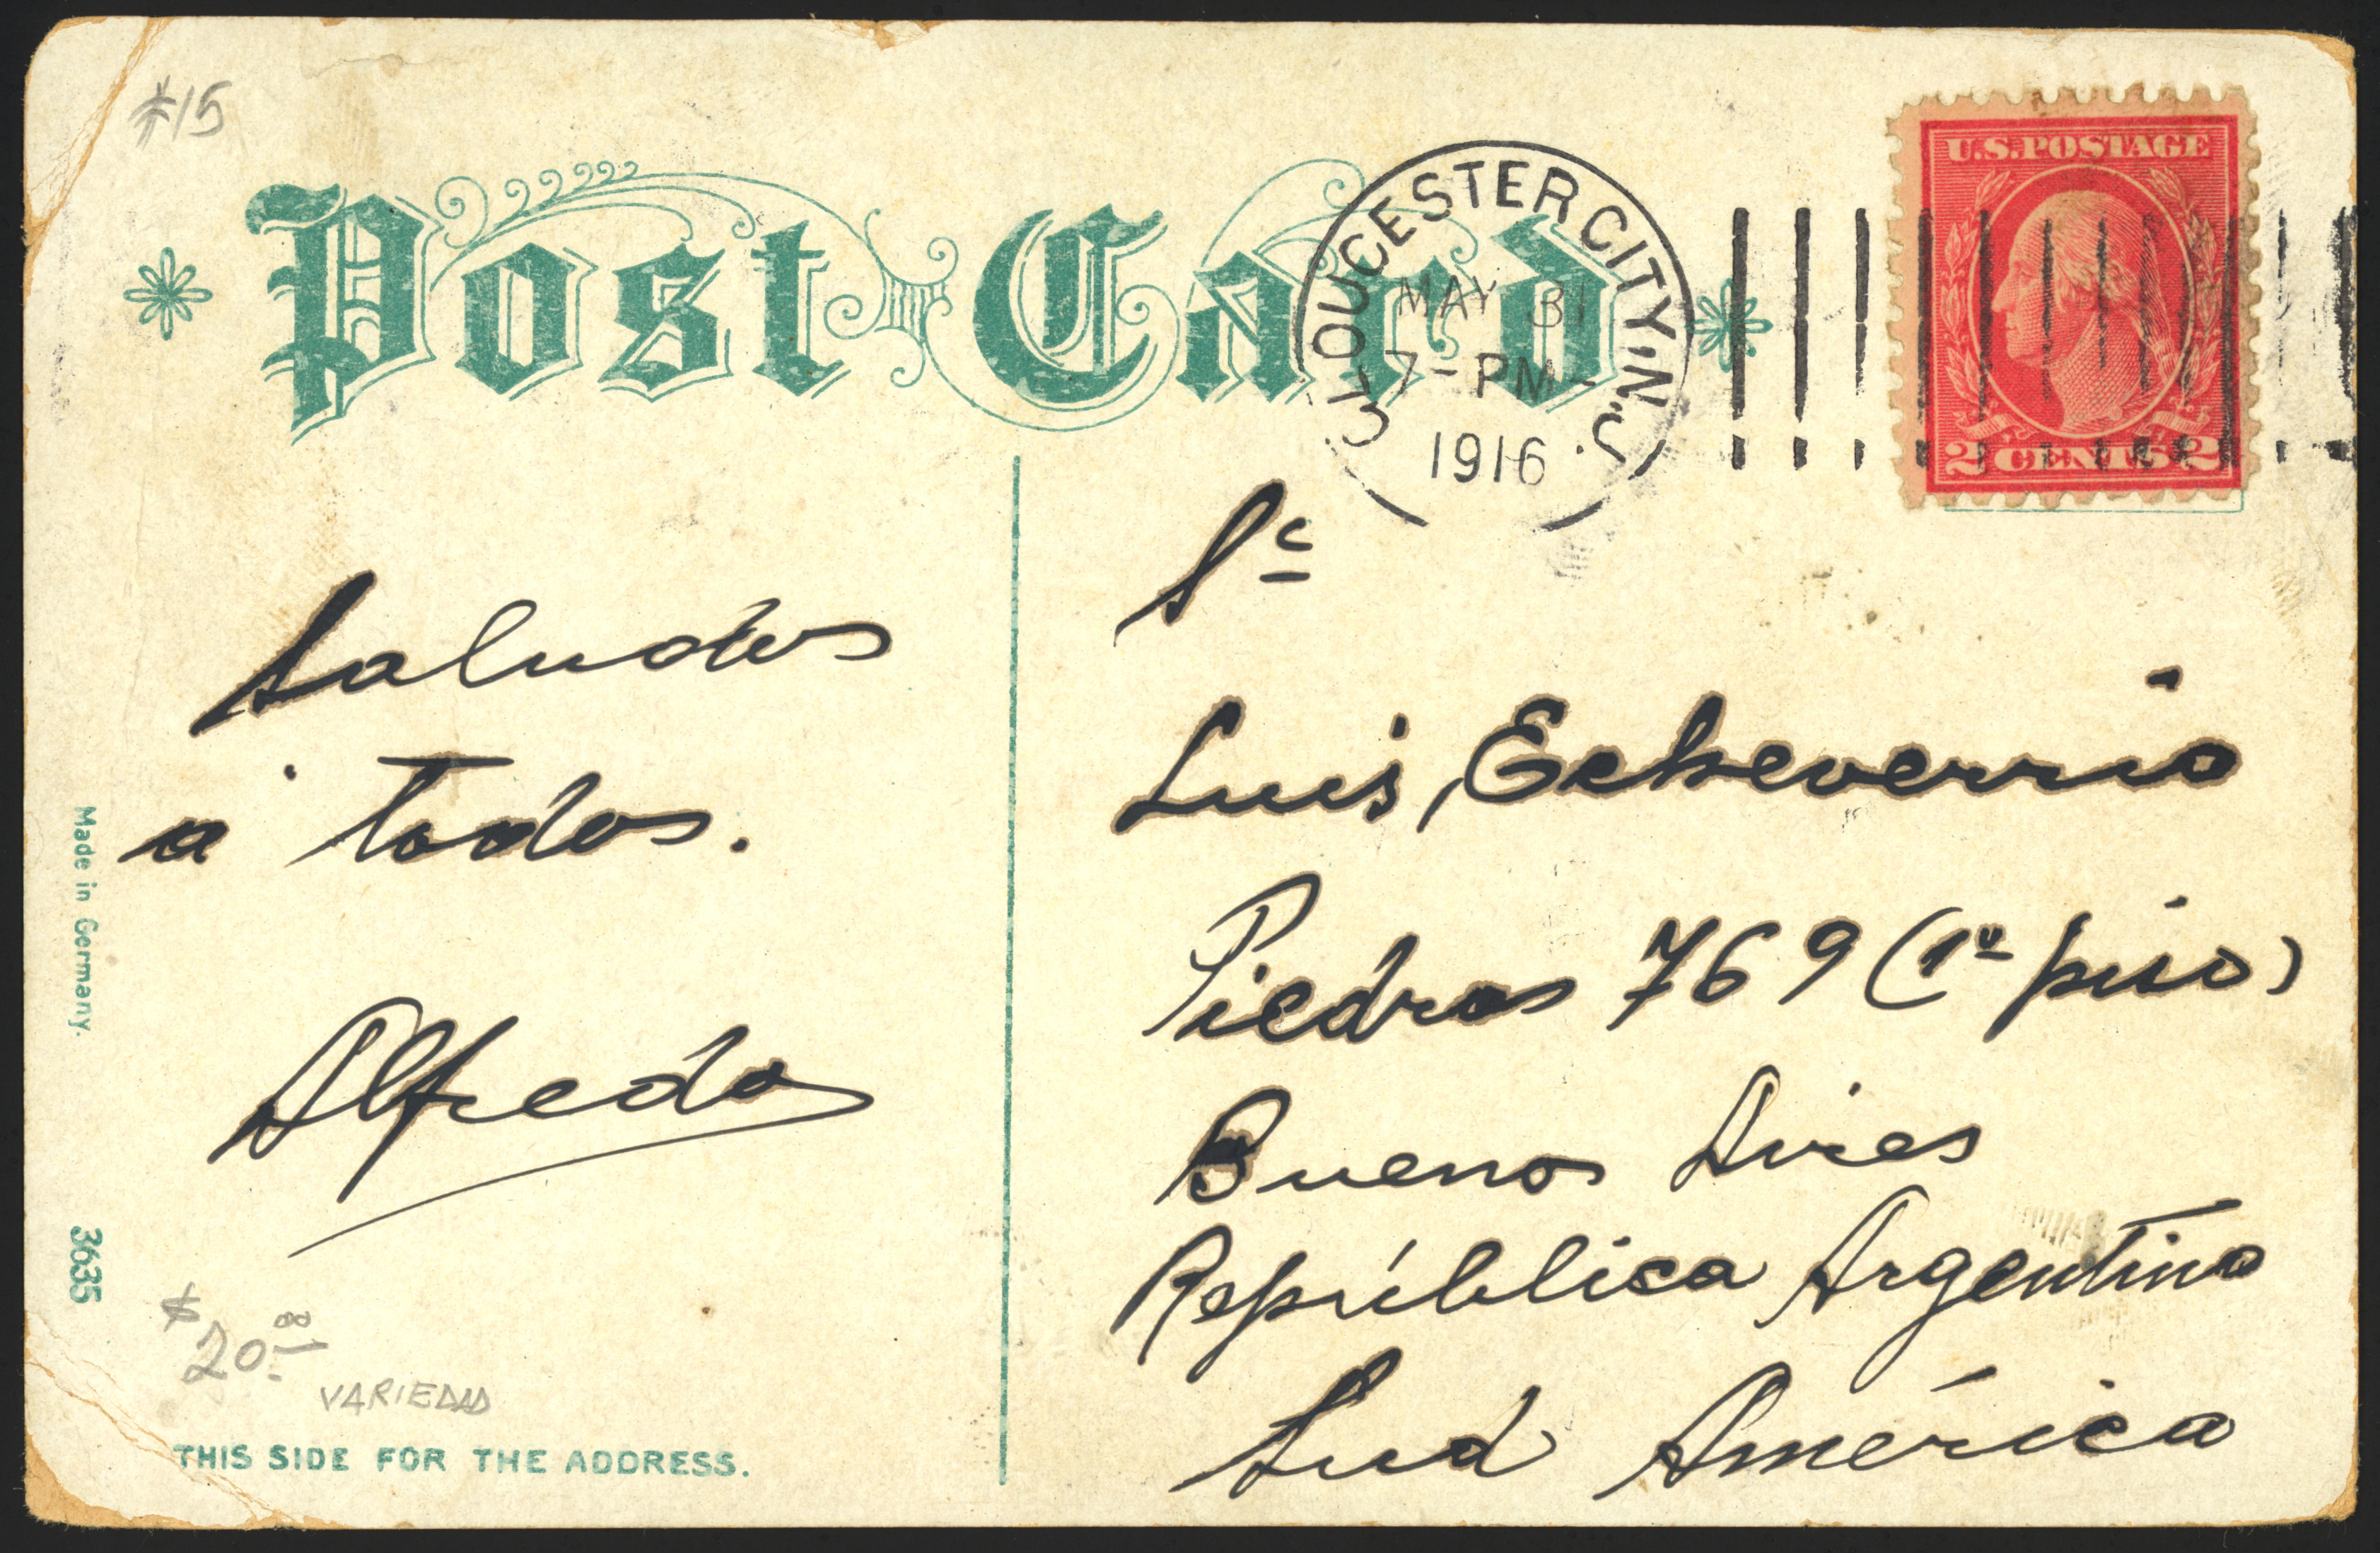 $15
Post Card
GLOUCESTER CITY, N.J.
MAY 31
7-PM-
1916
U.S. POSTAGE
2 CENTS 2
Saludos
a todos.
Alfredo
Made in Germany.
3635
$20.00
VARIEDAD
THIS SIDE FOR THE ADDRESS.
Sr
Luis Echeverria
Piedras 769 (1º piso)
Buenos Aires
República Argentina
Sud América